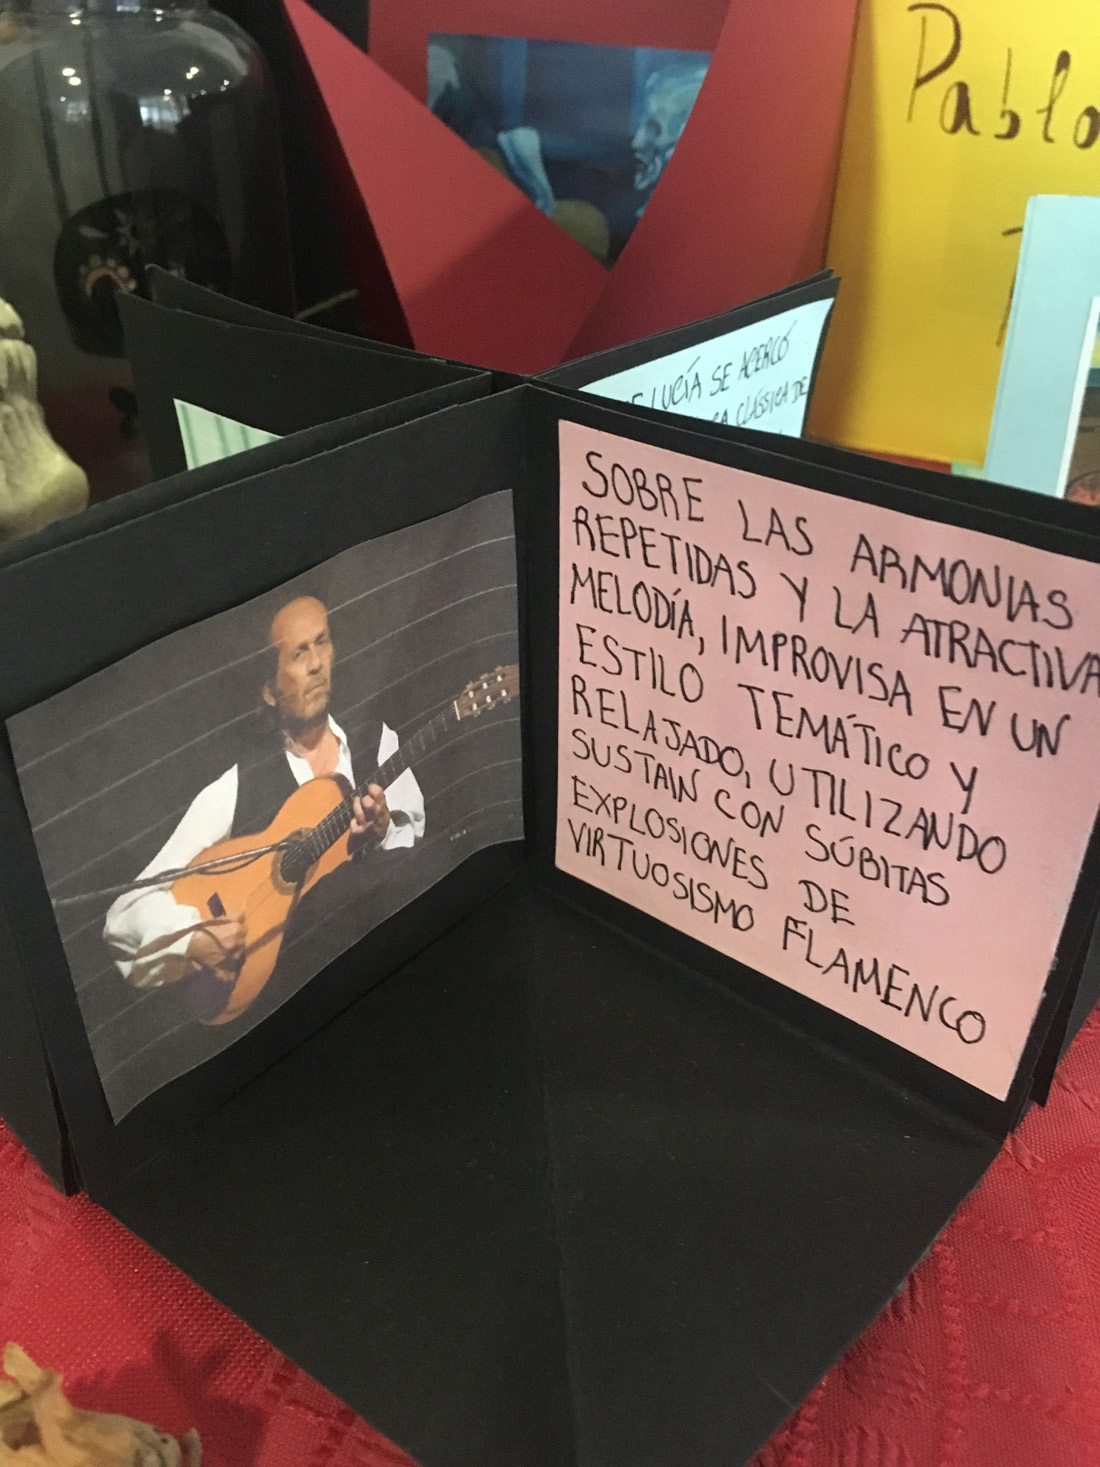 Pablo
LUCÍA SE ACERCÓ
CLÁSICA DE
SOBRE LAS ARMONIAS
REPETIDAS Y LA ATRACTIVA
MELODÍA, IMPROVISA EN UN
ESTILO TEMÁTICO Y
RELAJADO, UTILIZANDO
SUSTAIN CON SÚBITAS
EXPLOSIONES DE
VIRTUOSISMO FLAMENCO